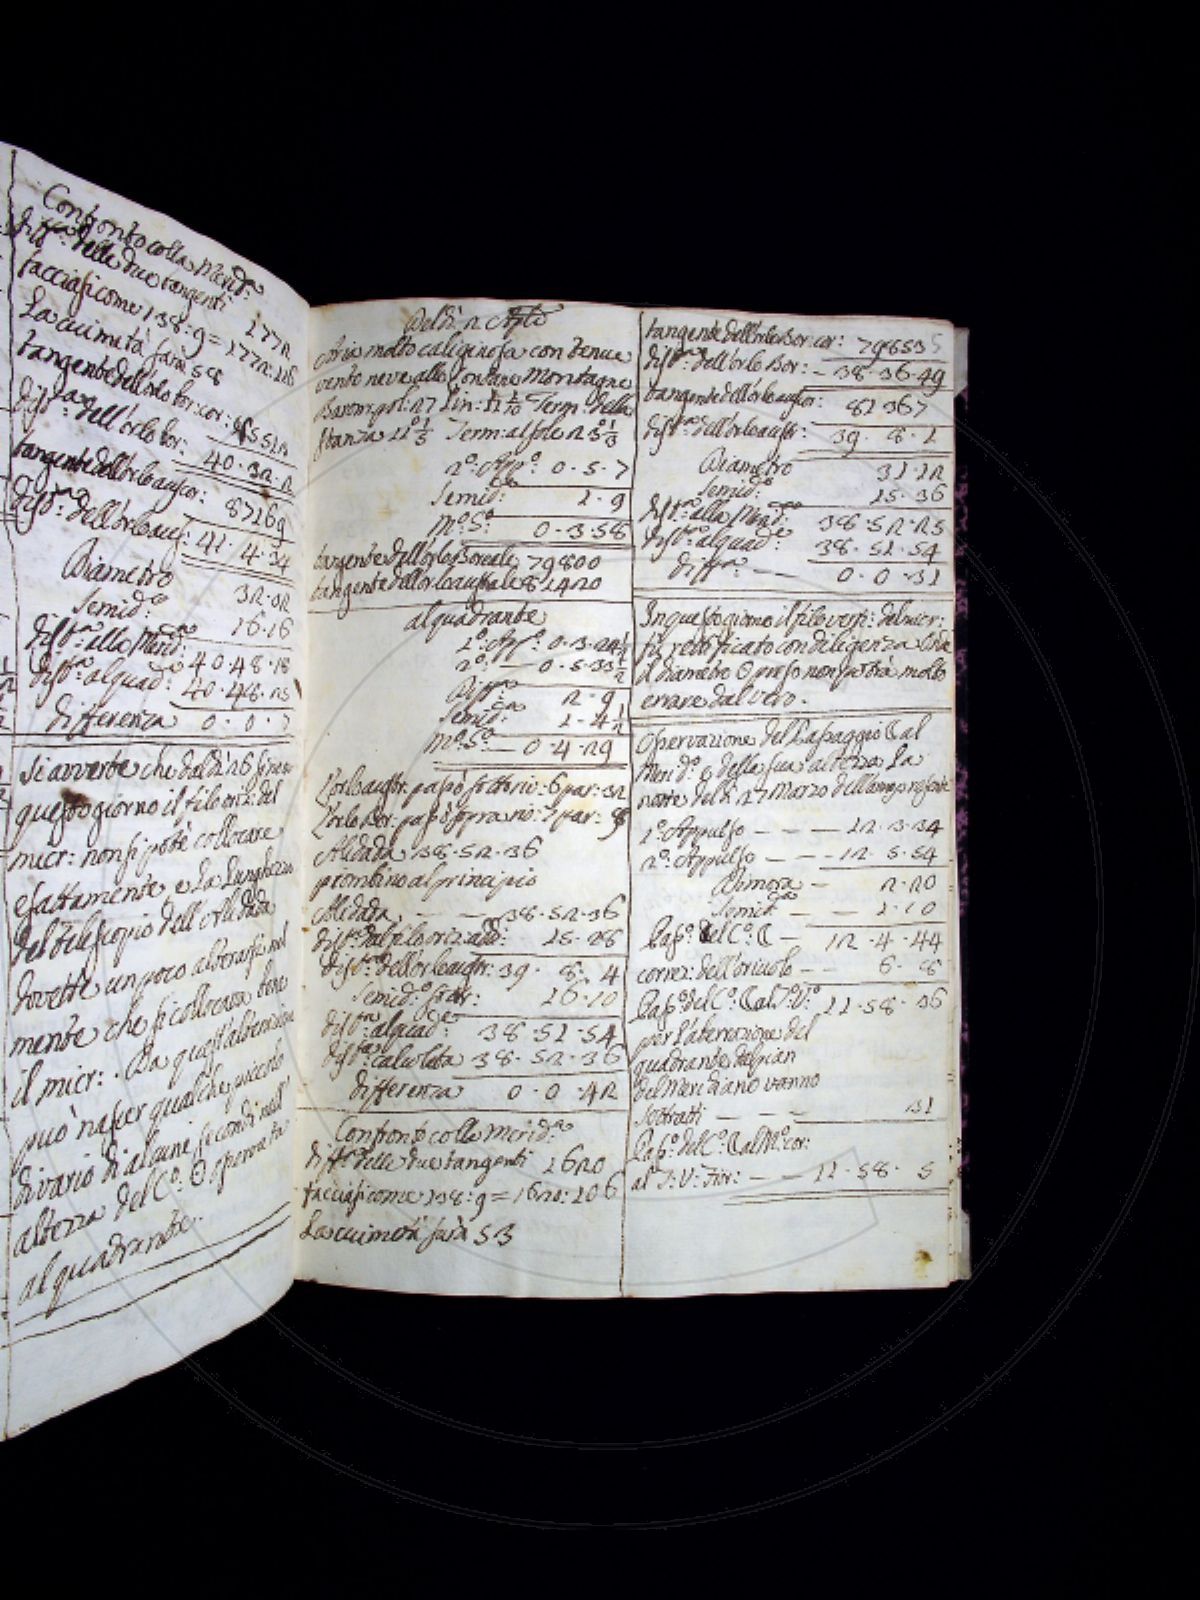 Confronto colla Merid.na
diff.a delle due tangenti 1772
facciasi come 138:9 = 1772:116
La cui metà sarà 58
tangente dell'orlo bor: cor:
dist.a dell'orlo bor: 40.32.2
tangente dell'orlo aus: cor: 87169
dist.a dell'orlo aus: 41.4.34
Diametro 32.32
Semid.o 16.16
dist.a alla Merid.a 40.48.18
dist.a al quad.e 40.48.25
differenza 0.0.7
Si avverte che dal dì 26 sino a
questo giorno il filo oriz: del
micr: non si potè collocare
esattamente e la lunghezza
del telescopio dell'Allidada
dovette un poco alterarsi nel
mente che si collocava bene
il micr: . Da quest'alterazione
può nascer qualche piccolo
divario di alcuni secondi nell'
altezza del C.o ☉ operata
al quadrante.
Del dì 2 Aple
Aria molto caliginosa con tenue
vento neve alle lontane Montagne
Barom: pol: 27 lin: Term: della
stanza 11° 1/3 Term: al sole 23° 1/3
2.o App.o 0.5.7
Semid: 1.9
M.o S.o 0.3.58
tangente dell'orlo Boreale 79800
tangente dell'orlo australe 81420
al quadrante
1.o App.o 0.3.24 1/2
2.o — 0.5.33 1/2
Diff.a 2.9
Semid: 1.4 1/2
M.o S.o — 0.4.29
L'orlo austr: passò sotto riv: 6 par: 32
L'orlo Bor: passò sopra riv: 7 par:
Alidada 38.52.36
piombino al principio
Alidada — — 38.52.36
dist.a dal filo oriz: add: 15.28
dist.a dell'orlo austr: 39.8.4
Semid.o sottr: 16.10
dist.a al quad.e 38.51.54
dist.a calcolata 38.52.36
differenza 0.0.42
Confronto colla Merid.na
diff.a delle due tangenti 1620
facciasi come 138:9 = 1620:106
La cui metà sarà 53
tangente dell'orlo Bor: cor: 79853
dist.a dell'orlo Bor: — 38.36.49
tangente dell'orlo aus: cor: 81367
dist.a dell'orlo austr: 39.8.1
Diametro 31.12
Semid.o 15.36
dist.a alla Merid.a 38.52.25
dist.a al quad.e 38.51.54
Diff.a — 0.0.31
In questo giorno il filo vert: del micr:
fu rettificato con diligenza onde
il diametro ☉ preso non potrà molto
errare dal vero.
Osservazione del Passaggio ☾ al
Merid.o e della sua altezza la
notte del dì 27 Marzo dell'anno presente
1.o Appulso — — — 12.3.34
2.o Appulso — — — 12.5.54
Dimora — 2.20
Semid.a — — 1.10
Pass.o del C.o ☾ — 12.4.44
correz: dell'oriuolo — — 6.8
Pass.o del C.o ☾ al T.o V.o 11.58.36
per l'aberrazione del
quadrante dal pian
del Meridiano vanno
sottratti — — — 31
Pass.o del C.o ☾ al M.o cor:
al T: V: Fior: — — 11.58.5